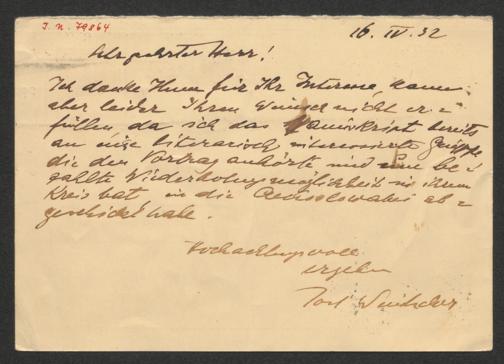 I. N. 79864
16. IV. 32
Sehr geehrter Herr!
Ich danke Ihnen für Ihr Interesse, kann
aber leider Ihren Wunsch nicht er-
füllen da ich das Manuskript bereits
an eine literarisch interessierte
die den Vortrag anhörte und um be-
zahlte Wiederholungsmöglichkeit in ihrem
Kreis bat, in die ab-
geschickt habe.
Hochachtungsvoll
ergeben